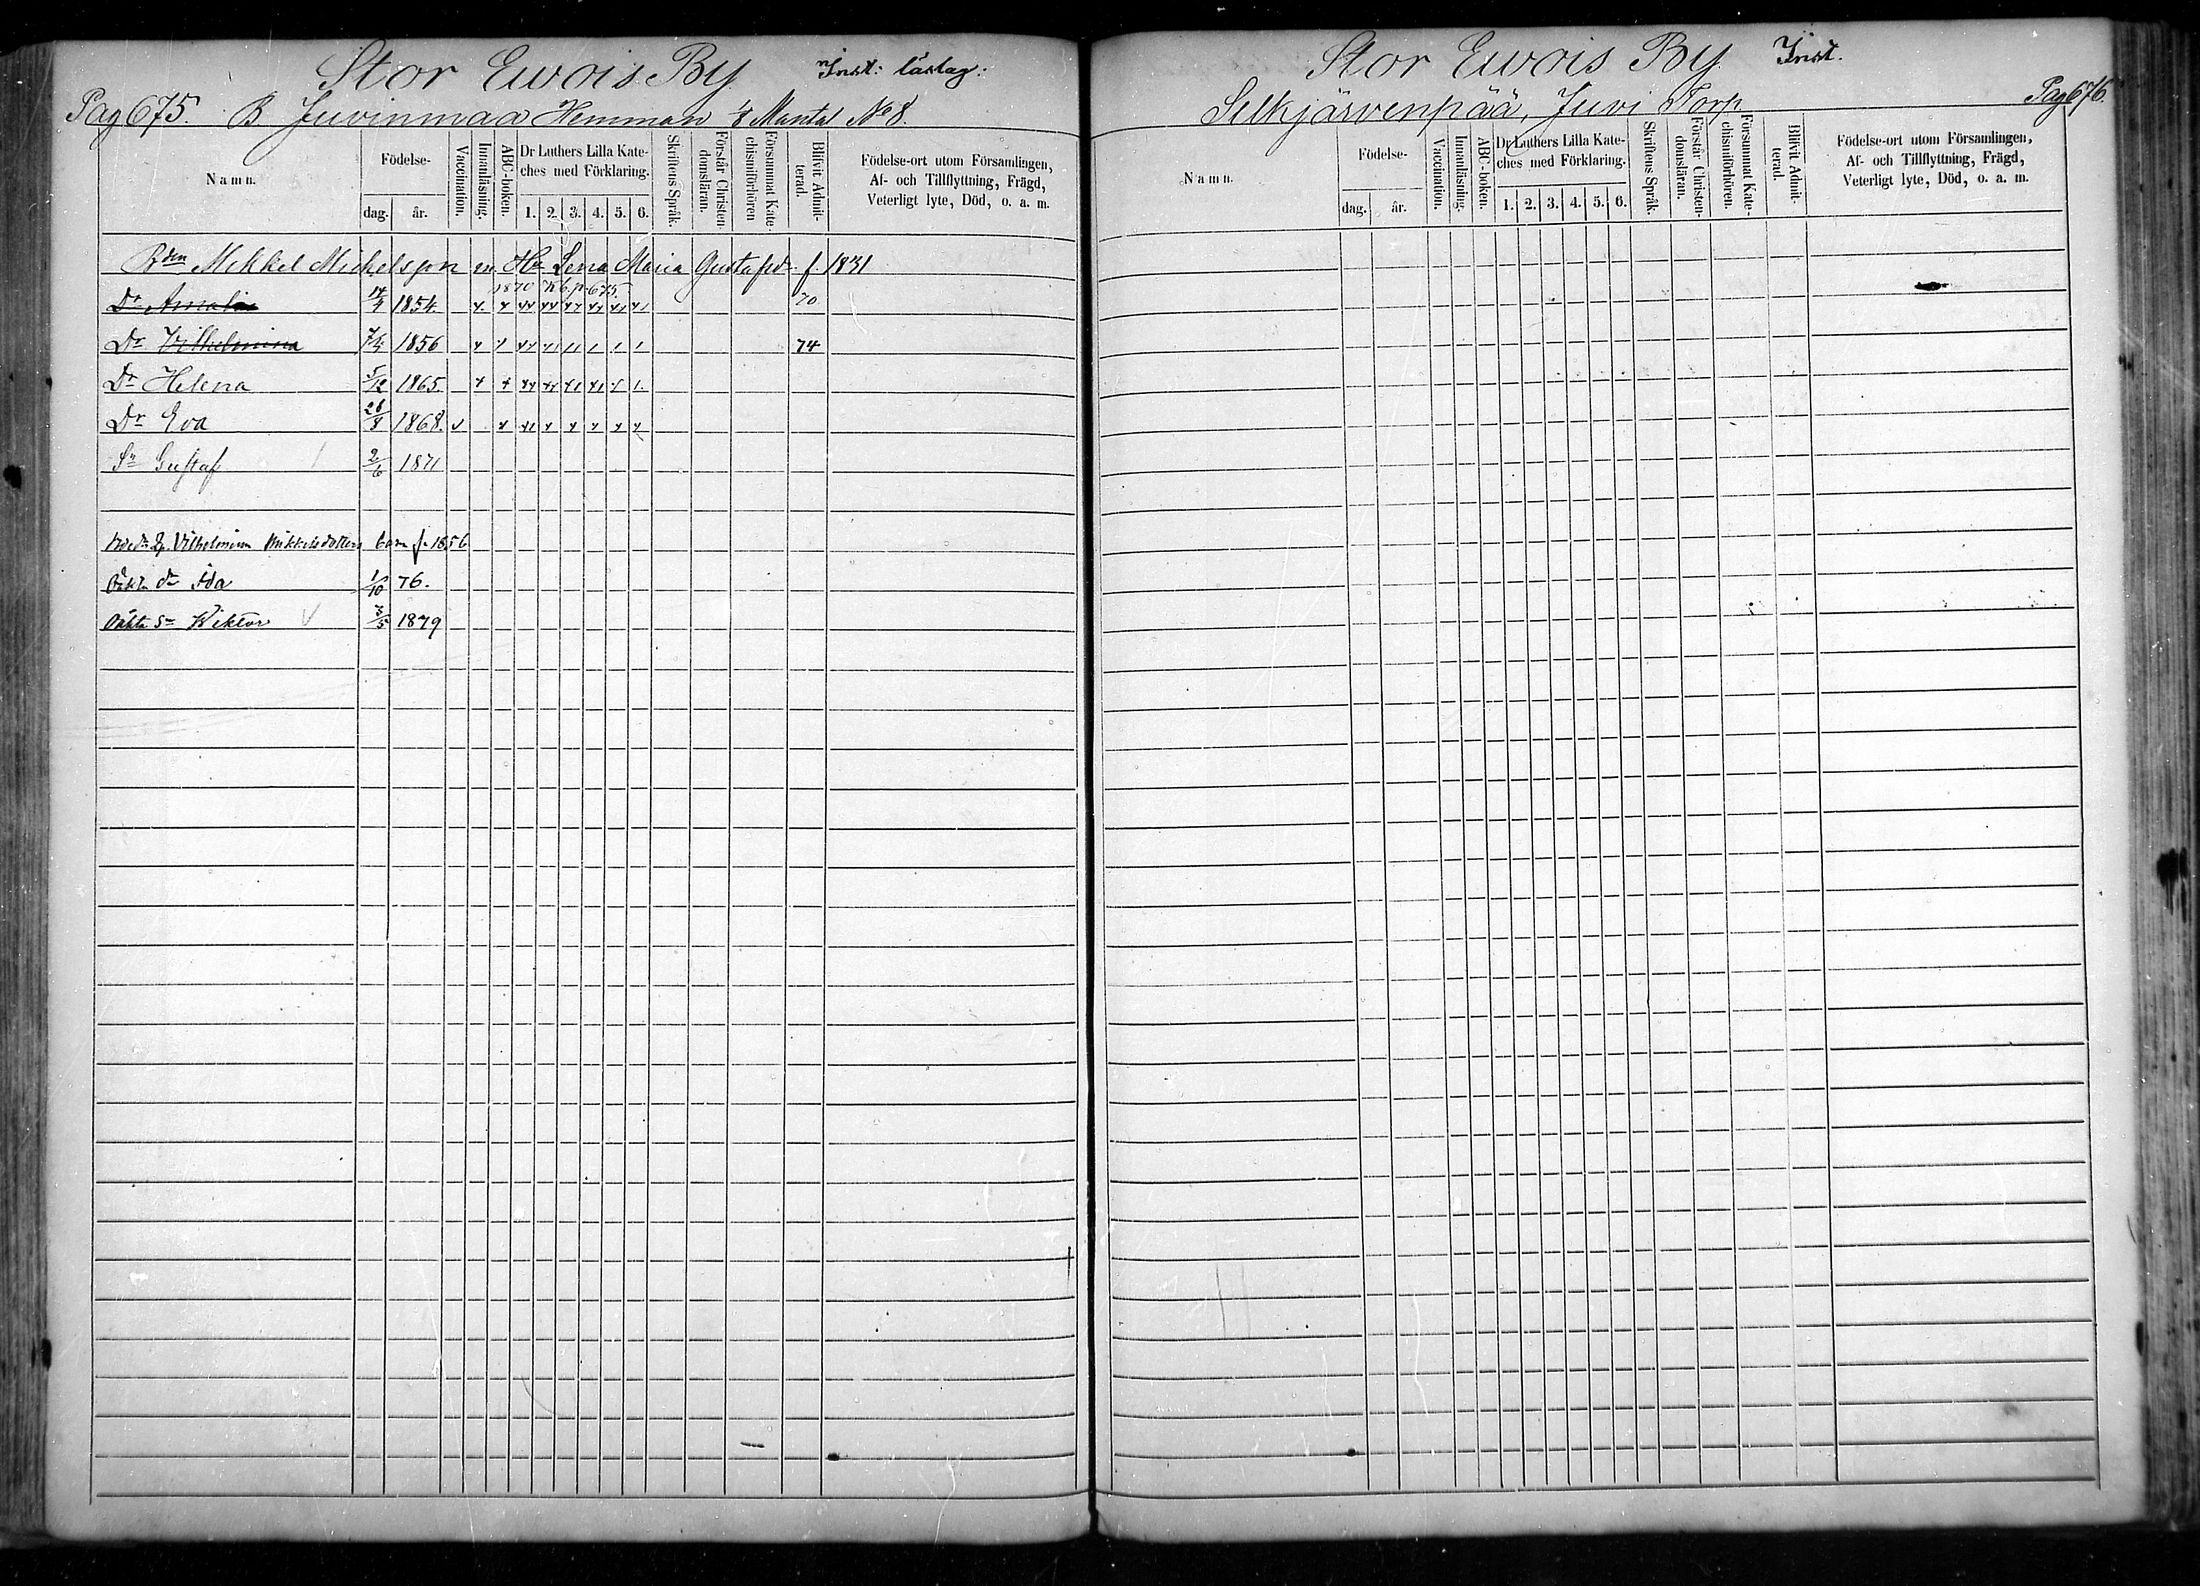 Stor Ewois By Inst: läslag:
Pag 675. B Juvinmaa Hemman 1/8 Mantal No 8.
Namn.
Födelse-
dag. år.
Vaccination.
Innanläsning.
ABC-boken.
Dr Luthers Lilla Kate-
ches med Förklaring.
1. 2. 3. 4. 5. 6.
Skriftens Språk.
Förstår Christen-
domsläran.
Försummat Kate-
chismiförhören
Blifvit Admit-
terad.
Födelse-ort utom Församlingen,
Af- och Tillflyttning, Frägd,
Veterligt lyte, Död, o. a. m.
Bden Mikkel Michelsson m. Hu Lena Maria Gustafsdr f. 1831
1870 Kb p. 675
Dr Amalia 1854. 70
Dr Vilhelmina 1856 74
Dr Helena 5/12 1865.
Dr Eva 1868.
Sn Gustaf 2/6 1871
Vilhelmina Mikkelsdotters barn f. 1856
Oäkta dr Ida 1/10 76.
Oäkta Sn Wiktor 3/5 1879
Stor Ewois By Inst.
Selkjärvenpää, Juvi Torp Pag 676.
Namn.
Födelse-
dag. år.
Vaccination.
Innanläsning.
ABC-boken.
Dr Luthers Lilla Kate-
ches med Förklaring.
1. 2. 3. 4. 5. 6.
Skriftens Språk.
Förstår Christen-
domsläran.
Försummat Kate-
chismiförhören.
Blifvit Admit-
terad.
Födelse-ort utom Församlingen,
Af- och Tillflyttning, Frägd,
Veterligt lyte, Död, o. a. m.